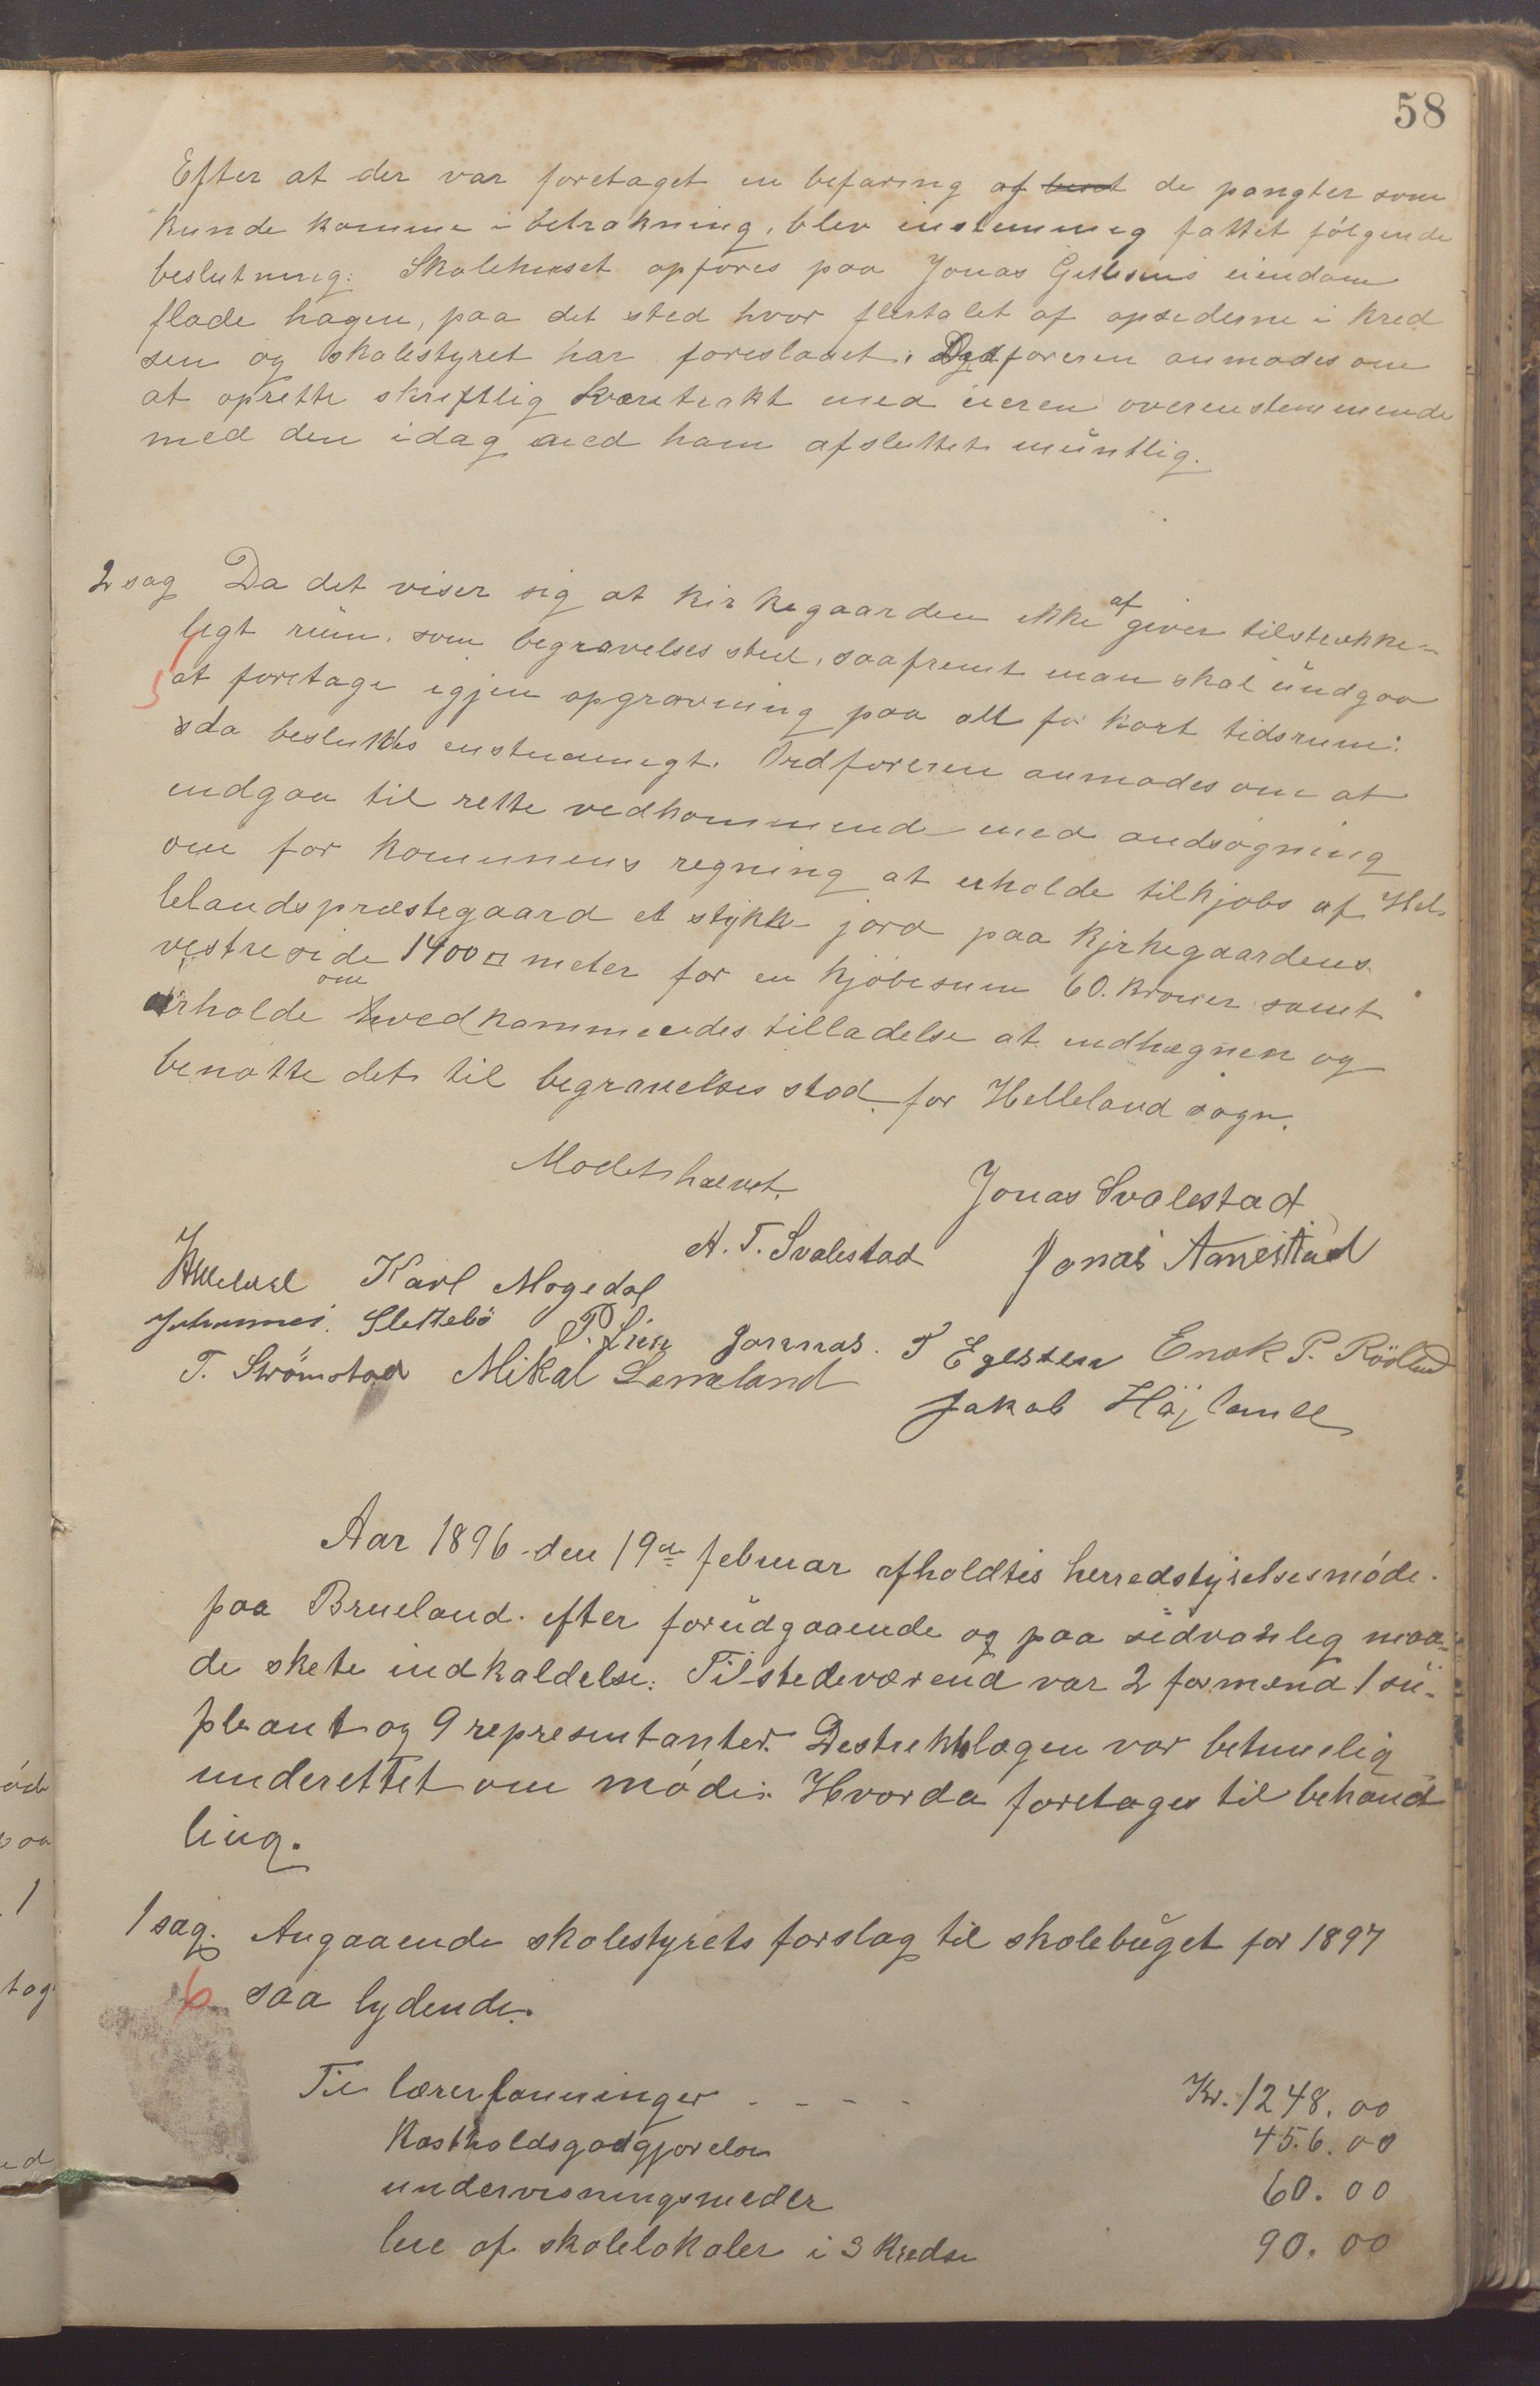 58
Efter at der var foretaget en befaring af de pongter som
kunde komme i betrakning, blev enstemmeg fattet følgende
beslutning: Skolehuset opføres paa Jonas eiendom
flade hagen, paa det sted hvor flertalet af opsederne i kred
sen og skolestyret har foreslaaet. Ordføreren anmodes om
at oprette skriftlig med eieren overenstemmende
med den idag med ham afsluttet müntlig.
2 sag Da det viser sig at kirkegaarden ikke af giver tilstrække-
ligt rüm, som begravelses sted, saafremt man skal ündgaa
5 at foretage igjen opgravning paa alt for kort tidsrum:
da besluttes enstemmigt. Ordføreren anmodes om at
indgaa til rette vedkommende med andsøgning
om for komunens regning at erholde tilkjøbs af Hel-
lelandspræstegaard et stykke jord paa kjrkegaardens
vestre side 1400 □ meter for en kjøbesum 60. kroner samt
om
erholde vedkommendes tilladelse at indhegnen og
benøtte det til begravelses stad for Helleland sogn.
Mødet hævet.
Jonas Svalestad
A. T. Svalestad Jonas Aarrestad
Karl Mogedal
Johannes Slettebö P. Lien Jonnas. T Egelsten Enok P. Röslund
T. Strømstad Mikal Lomeland
Jakob Höjland
Aar 1896 den 19de februar afholdtes herredstyrelsesmøde
paa Brueland efter forüdgaaende og paa sedvanleg maa-
de skete indkaldelse. Tilstedeværend var 2 formænd 1 sü-
pleant og 9 representanter. Destriktslægen var betimelig
underettet om møde. Hvorda foretages til behand
ling.
1 sag. Angaaende skolestyrets forslag til skolebüget for 1897
6 saa lydende.
Til lærerlønninger - - - - Kr. 1248.00
Kostholdsgodtgjørelse 456.00
undervisningsmedler 60.00
leie af skolelokaler i 3 kredse 90.00